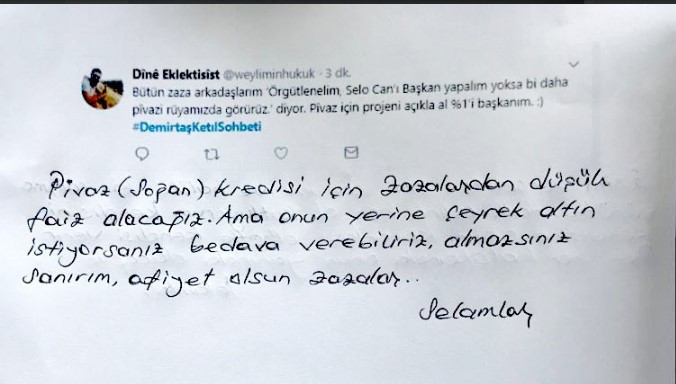 Dînê Eklektisist @weyliminhukuk · 3 dk.
Bütün zaza arkadaşlarım 'Örgütlenelim, Selo Can'ı Başkan yapalım yoksa bi daha
pîvazi rüyamızda görürüz.' diyor. Pîvaz için projeni açıkla al %1'i başkanım. :)
#DemirtaşKetılSohbeti
Pivaz (Soğan) kredisi için zazalardan düşük
faiz alacağız. Ama onun yerine çeyrek altın
istiyorsanız bedava verebiliriz, almazsınız
sanırım, afiyet olsun zazalar..
Selamlar